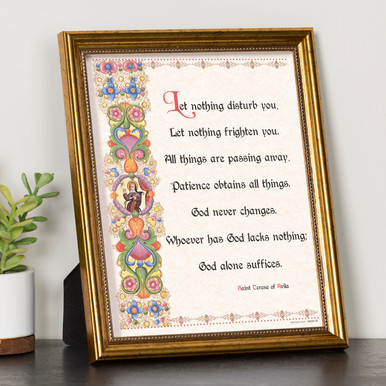 Let nothing disturb you,
Let nothing frighten you.
All things are passing away,
Patience obtains all things.
God never changes.
Whoever has God lacks nothing;
God alone suffices.
Saint Teresa of Avila